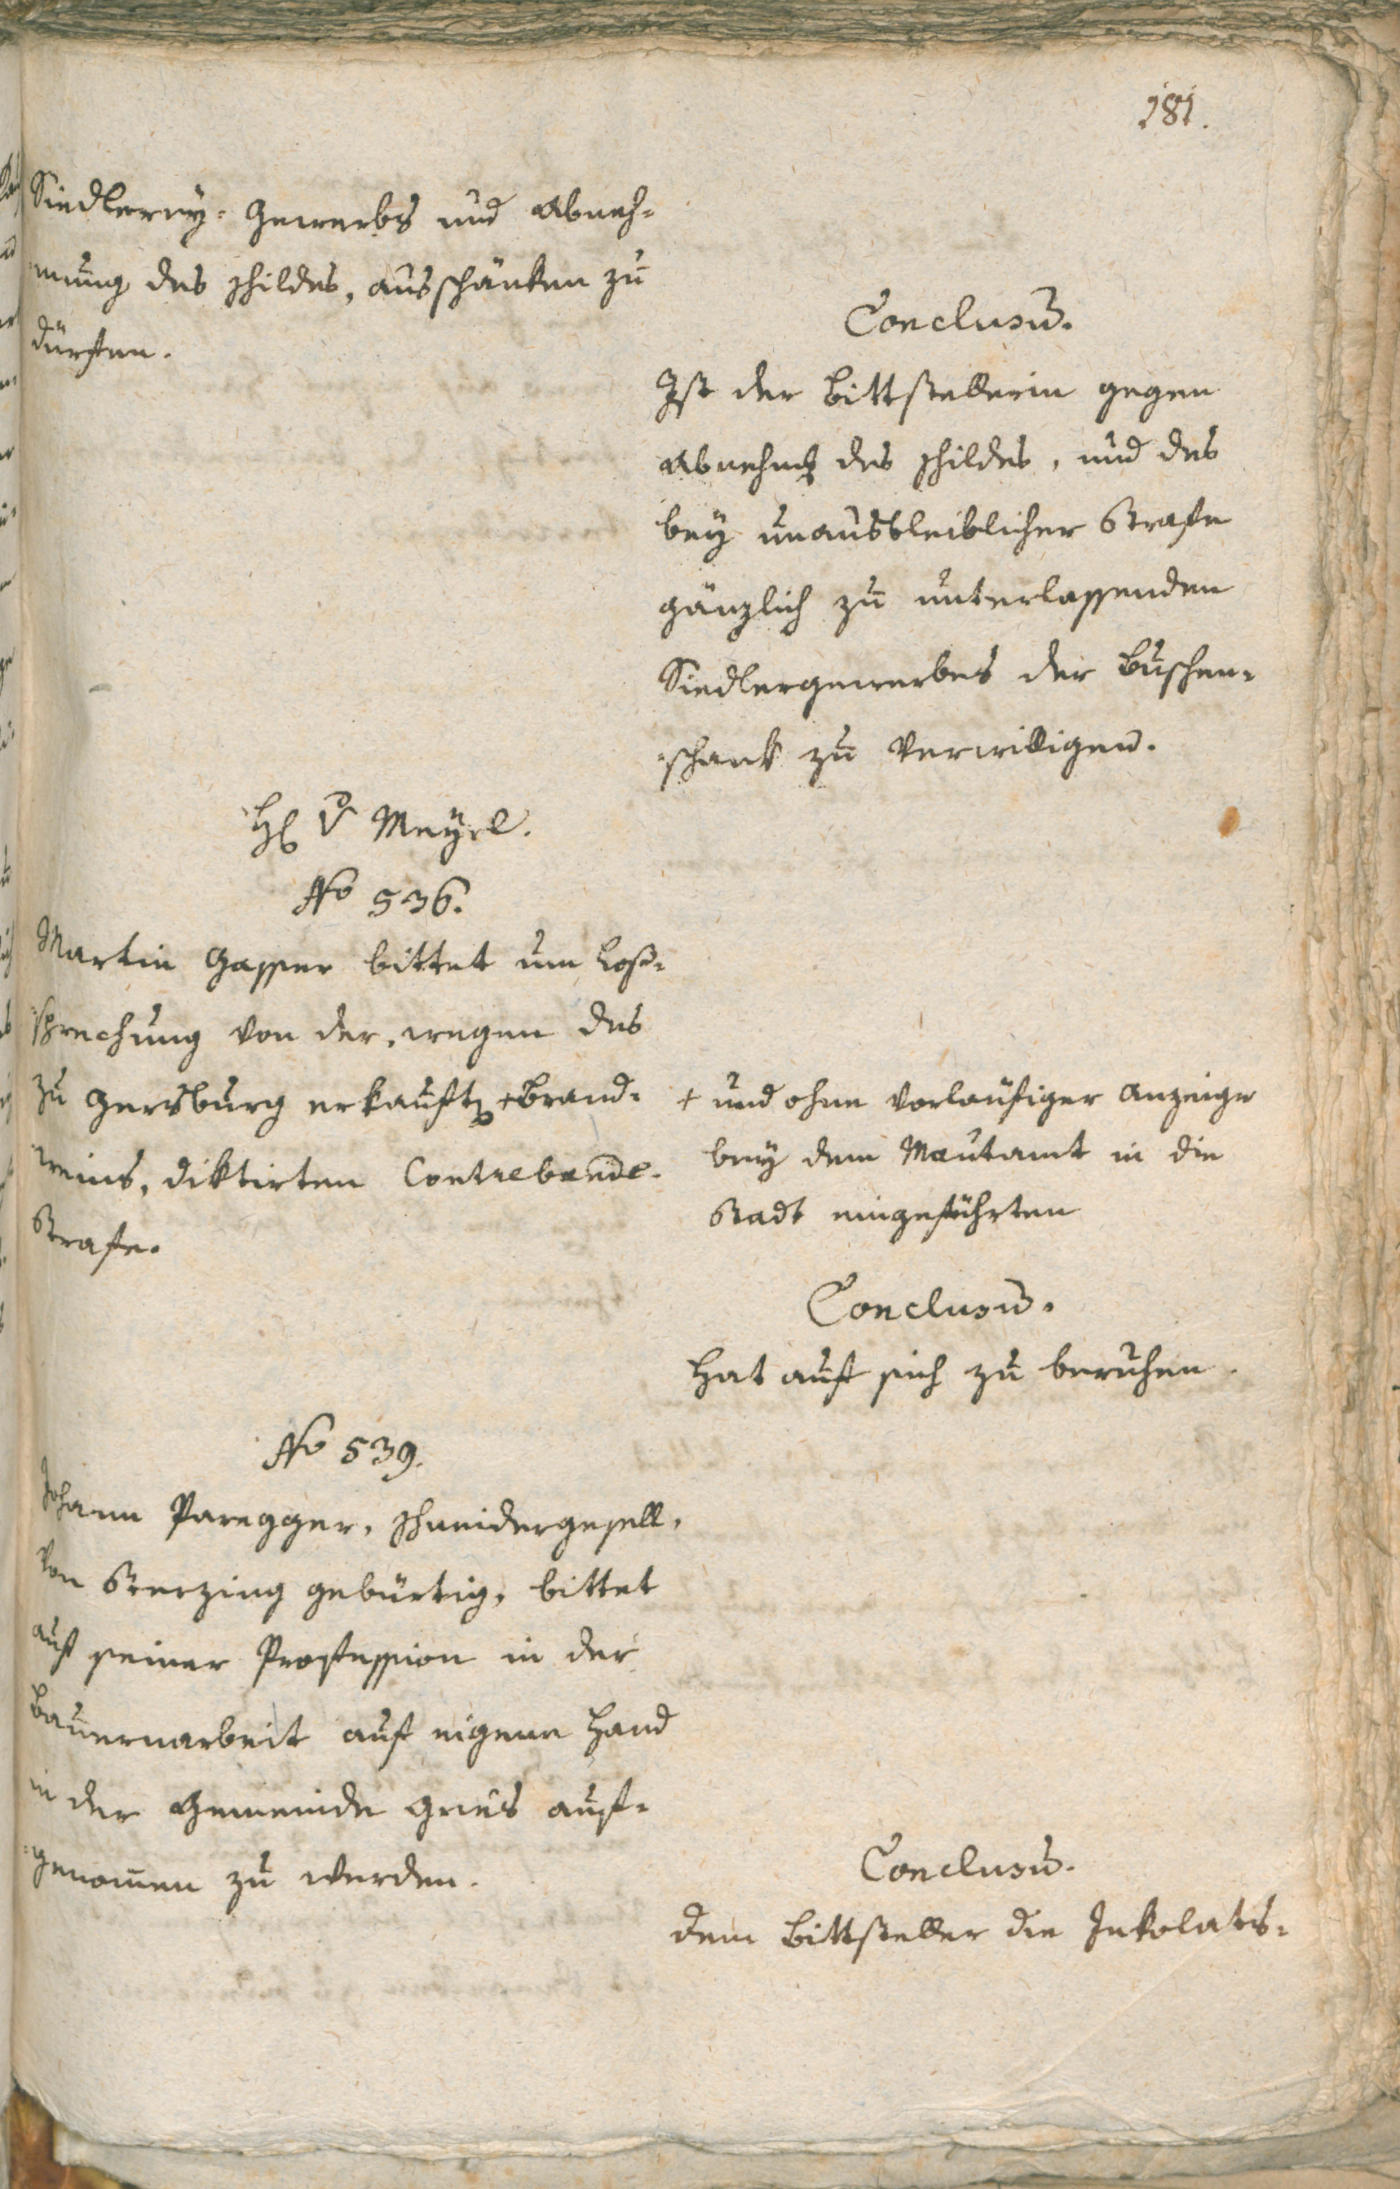 181.
Siedlerey-Gewerbs und Abneh-
mung des Schildes, ausschänken zu
dürfen.
Conclusu̅.
Ist der Bittstellerin gegen
Abnehmg des Schildes, und des
bey unausbleiblicher Strafe
gänzlich zu unterlassenden
Siedlergewerbes der Buschen-
schank zu verwilligen.
H. v Mayrl.
No 536.
Martin Gasser bittet um Loß-
sprechung von der, wegen des
zu Gersburg erkauften + Brand-
weins, diktirten Contrebande-
Strafe.
+ und ohne vorläufiger Anzeige
bey dem Mautamt in die
Stadt eingeführten
Conclusu̅.
Hat auf sich zu beruhen.
No 539.
Johann Paregger, Schneidergesell,
von Sterzing gebürtig, bittet
auf seiner Profession in der
Bauernarbeit auf eigene Hand
in der Gemeinde Gries auf-
genom̅en zu werden.
Conclusu̅.
dem Bittsteller die Inkolats-